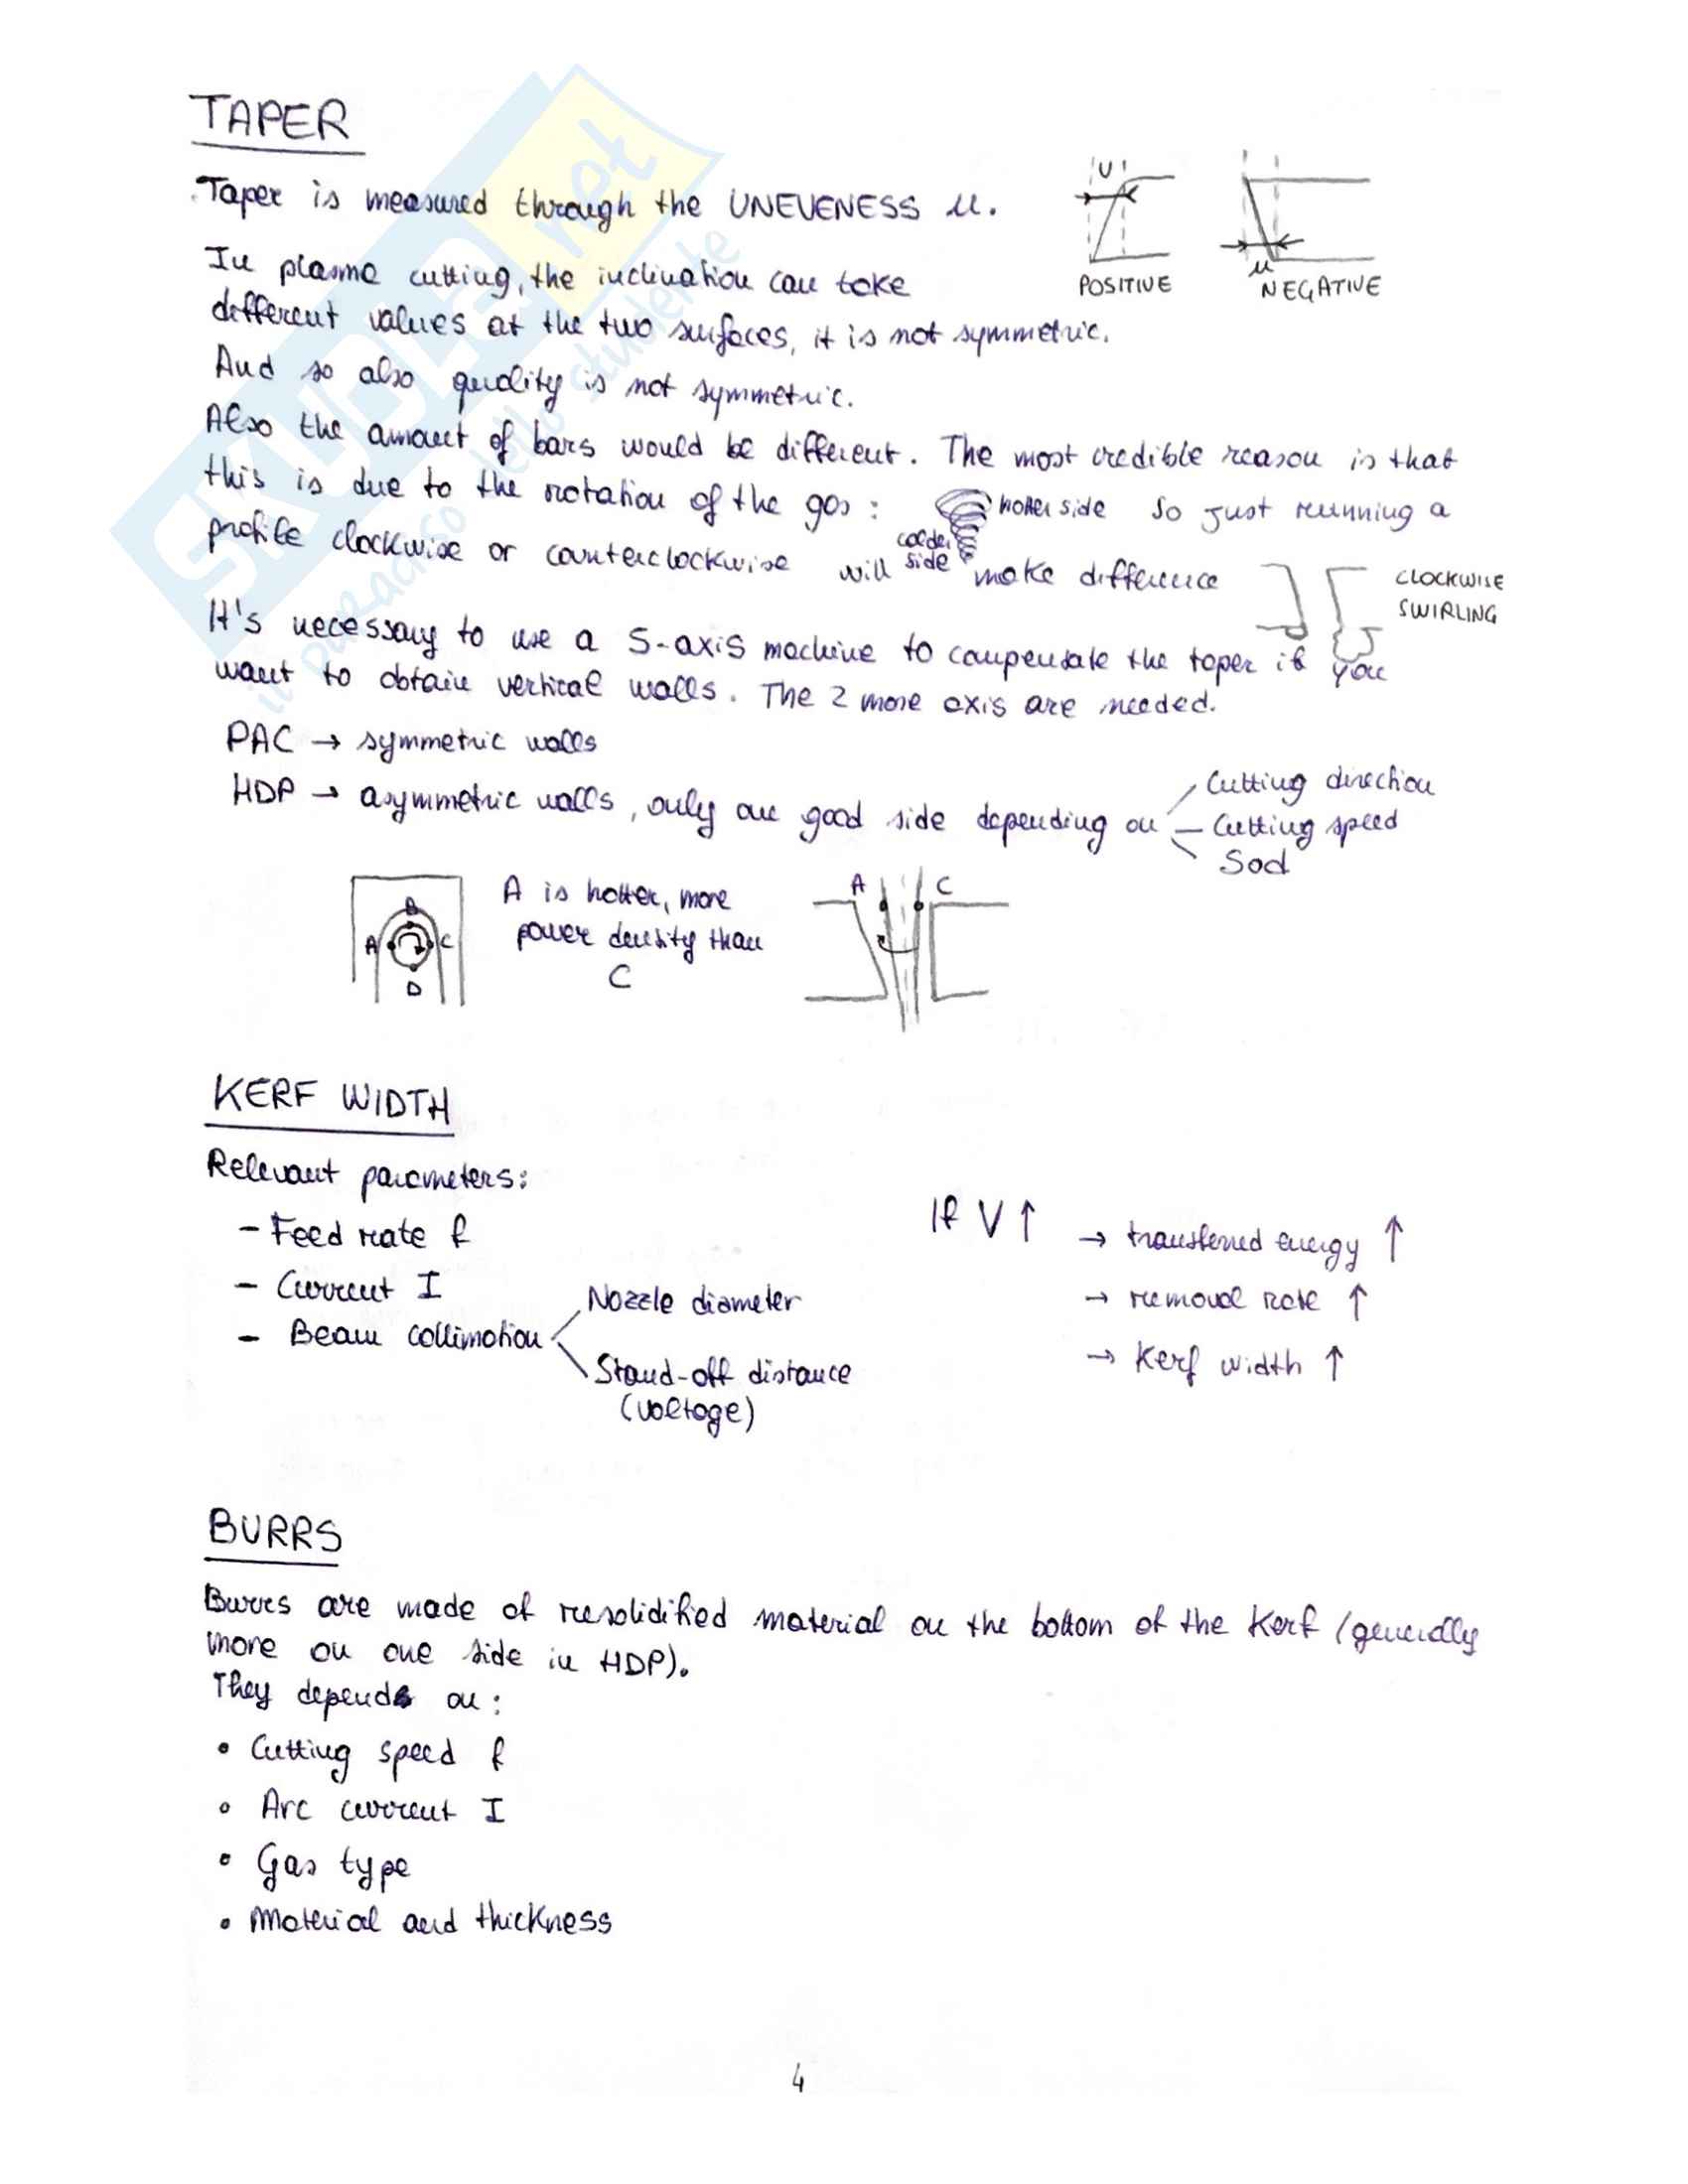 TAPER
Taper is measured through the UNEVENESS u.
U
POSITIVE
u
NEGATIVE
In plasma cutting, the inclination can take
different values at the two surfaces, it is not symmetric.
And so also quality is not symmetric.
Also the amount of bars would be different. The most credible reason is that
this is due to the rotation of the gas: hotter side So just running a
colder side
profile clockwise or counterclockwise will make difference
CLOCKWISE
SWIRLING
It's necessary to use a 5-axis machine to compensate the taper if you
want to obtain vertical walls. The 2 more axis are needed.
PAC → symmetric walls
HDP → asymmetric walls, only one good side depending on
Cutting direction
Cutting speed
Sod
B
A C
D
A is hotter, more
power density than
C
A C
KERF WIDTH
Relevant parameters:
- Feed rate f
- Current I
- Beam collimation
Nozzle diameter
Stand-off distance
(voltage)
If V ↑ → transferred energy ↑
→ removal rate ↑
→ Kerf width ↑
BURRS
Burrs are made of resolidified material on the bottom of the Kerf (generally
more on one side in HDP).
They depends on:
• Cutting speed f
• Arc current I
• Gas type
• Material and thickness
4
SKUOLA.net
il paradiso dello studente